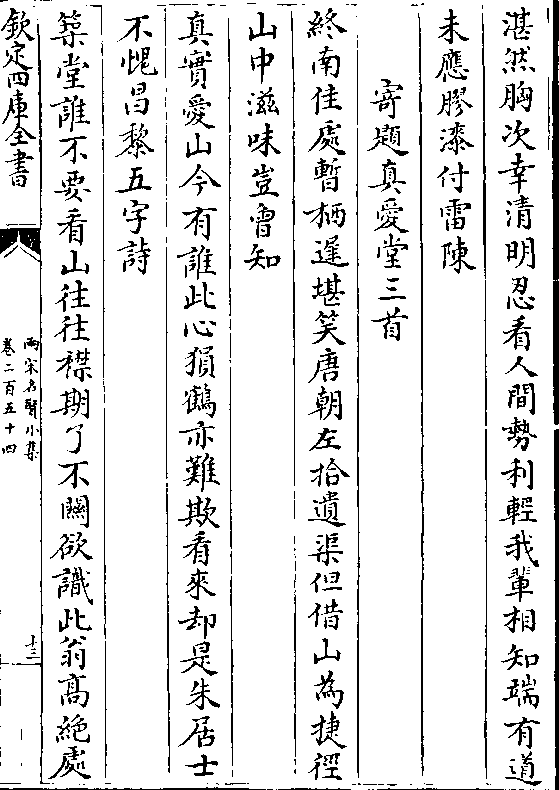 湛然胸次幸清明忍看人間勢利輕我輩相知端有道
未應膠漆付雷陳
寄題真愛堂三首
終南佳處暫栖遲堪笑唐朝左拾遺渠但借山為捷徑
山中滋味豈曾知
真實愛山今有誰此心猿鶴亦難欺看來却是朱居士
不愧昌黎五字詩
築堂誰不要看山往往襟期了不關欲識此翁高絶處
欽定四庫全書
兩宋名賢小集
卷二百五十四
十三